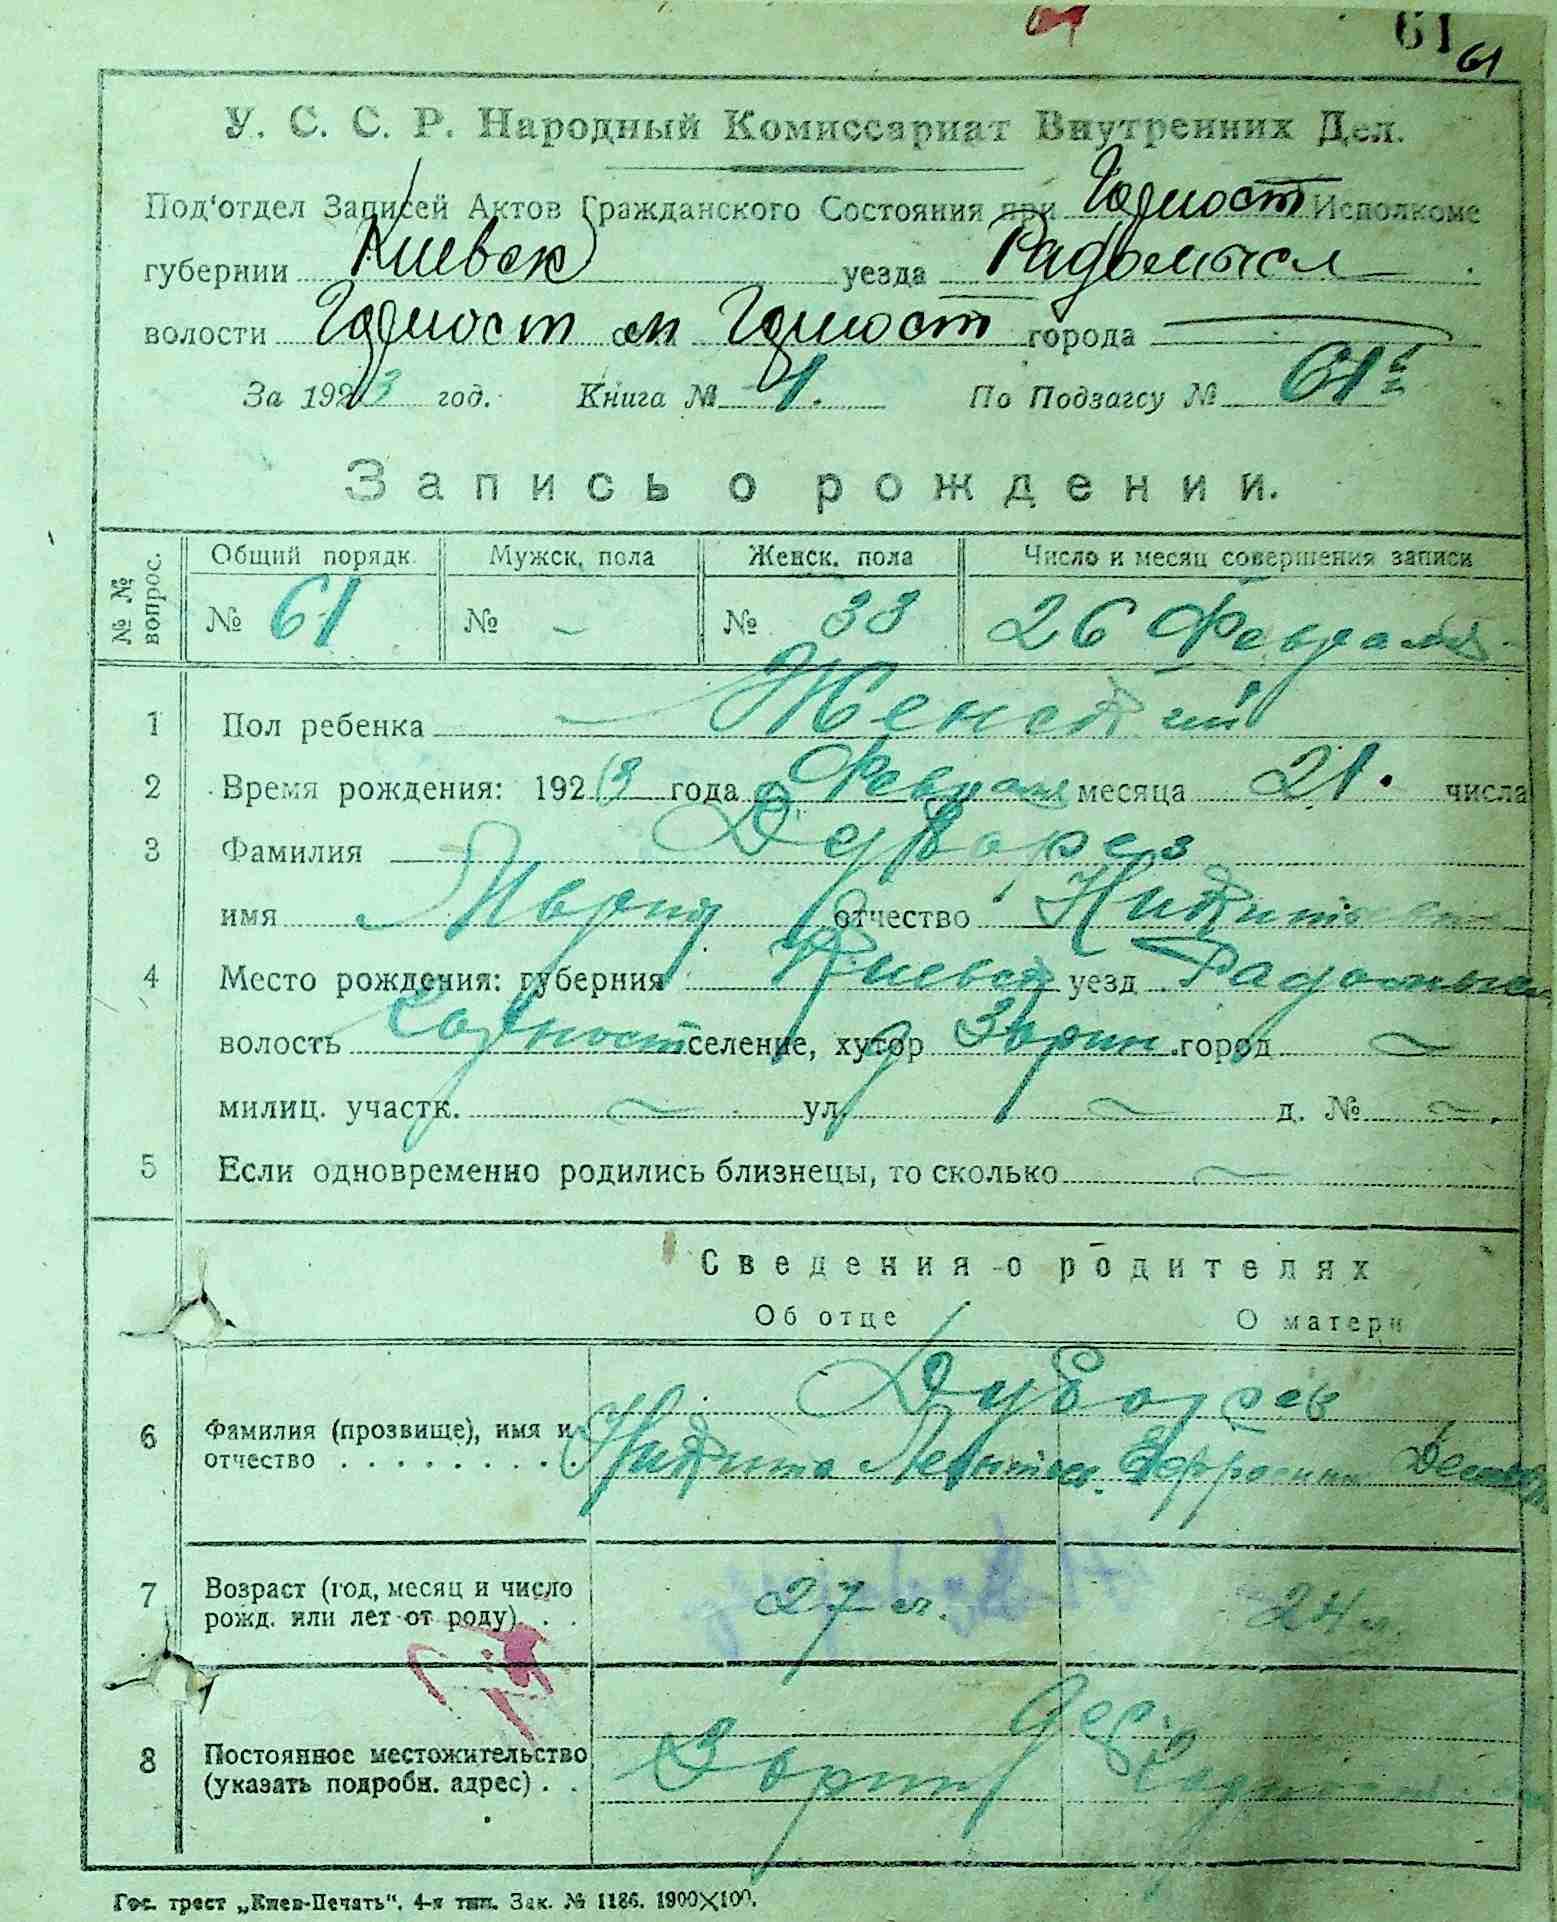 61
61
У. С. С. Р. Народный Комиссариат Внутренних Дел.
Под'отдел Записей Актов Гражданского Состояния при Кодмост Исполкоме
губернии Киевск уезда Радомысл
волости м города
За 1923 год. Книга № 1. По Подзагсу № 61
Запись о рождении.
№ № вопрос. Общий порядк. Мужск. пола Женск. пола Число и месяц совершения записи
№ 61 № - № 33 26 Февраля
1 Пол ребенка Женский
2 Время рождения: 1923 года Февраля месяца 21. числа
3 Фамилия
имя отчество Никитовна
4 Место рождения: губерния Киевск уезд Радомысл
волость селение, хутор Зорин город
милиц. участк. ул. д. №
5 Если одновременно родились близнецы, то сколько
Сведения о родителях
Об отце О матери
6 Фамилия (прозвище), имя и отчество
Никита
7 Возраст (год, месяц и число рожд. или лет от роду) 27 л. 24 л.
8 Постоянное местожительство (указать подробн. адрес) Зорин
Гос. трест „Киев-Печать". 4-я тип. Зак. № 1186. 1900×100.